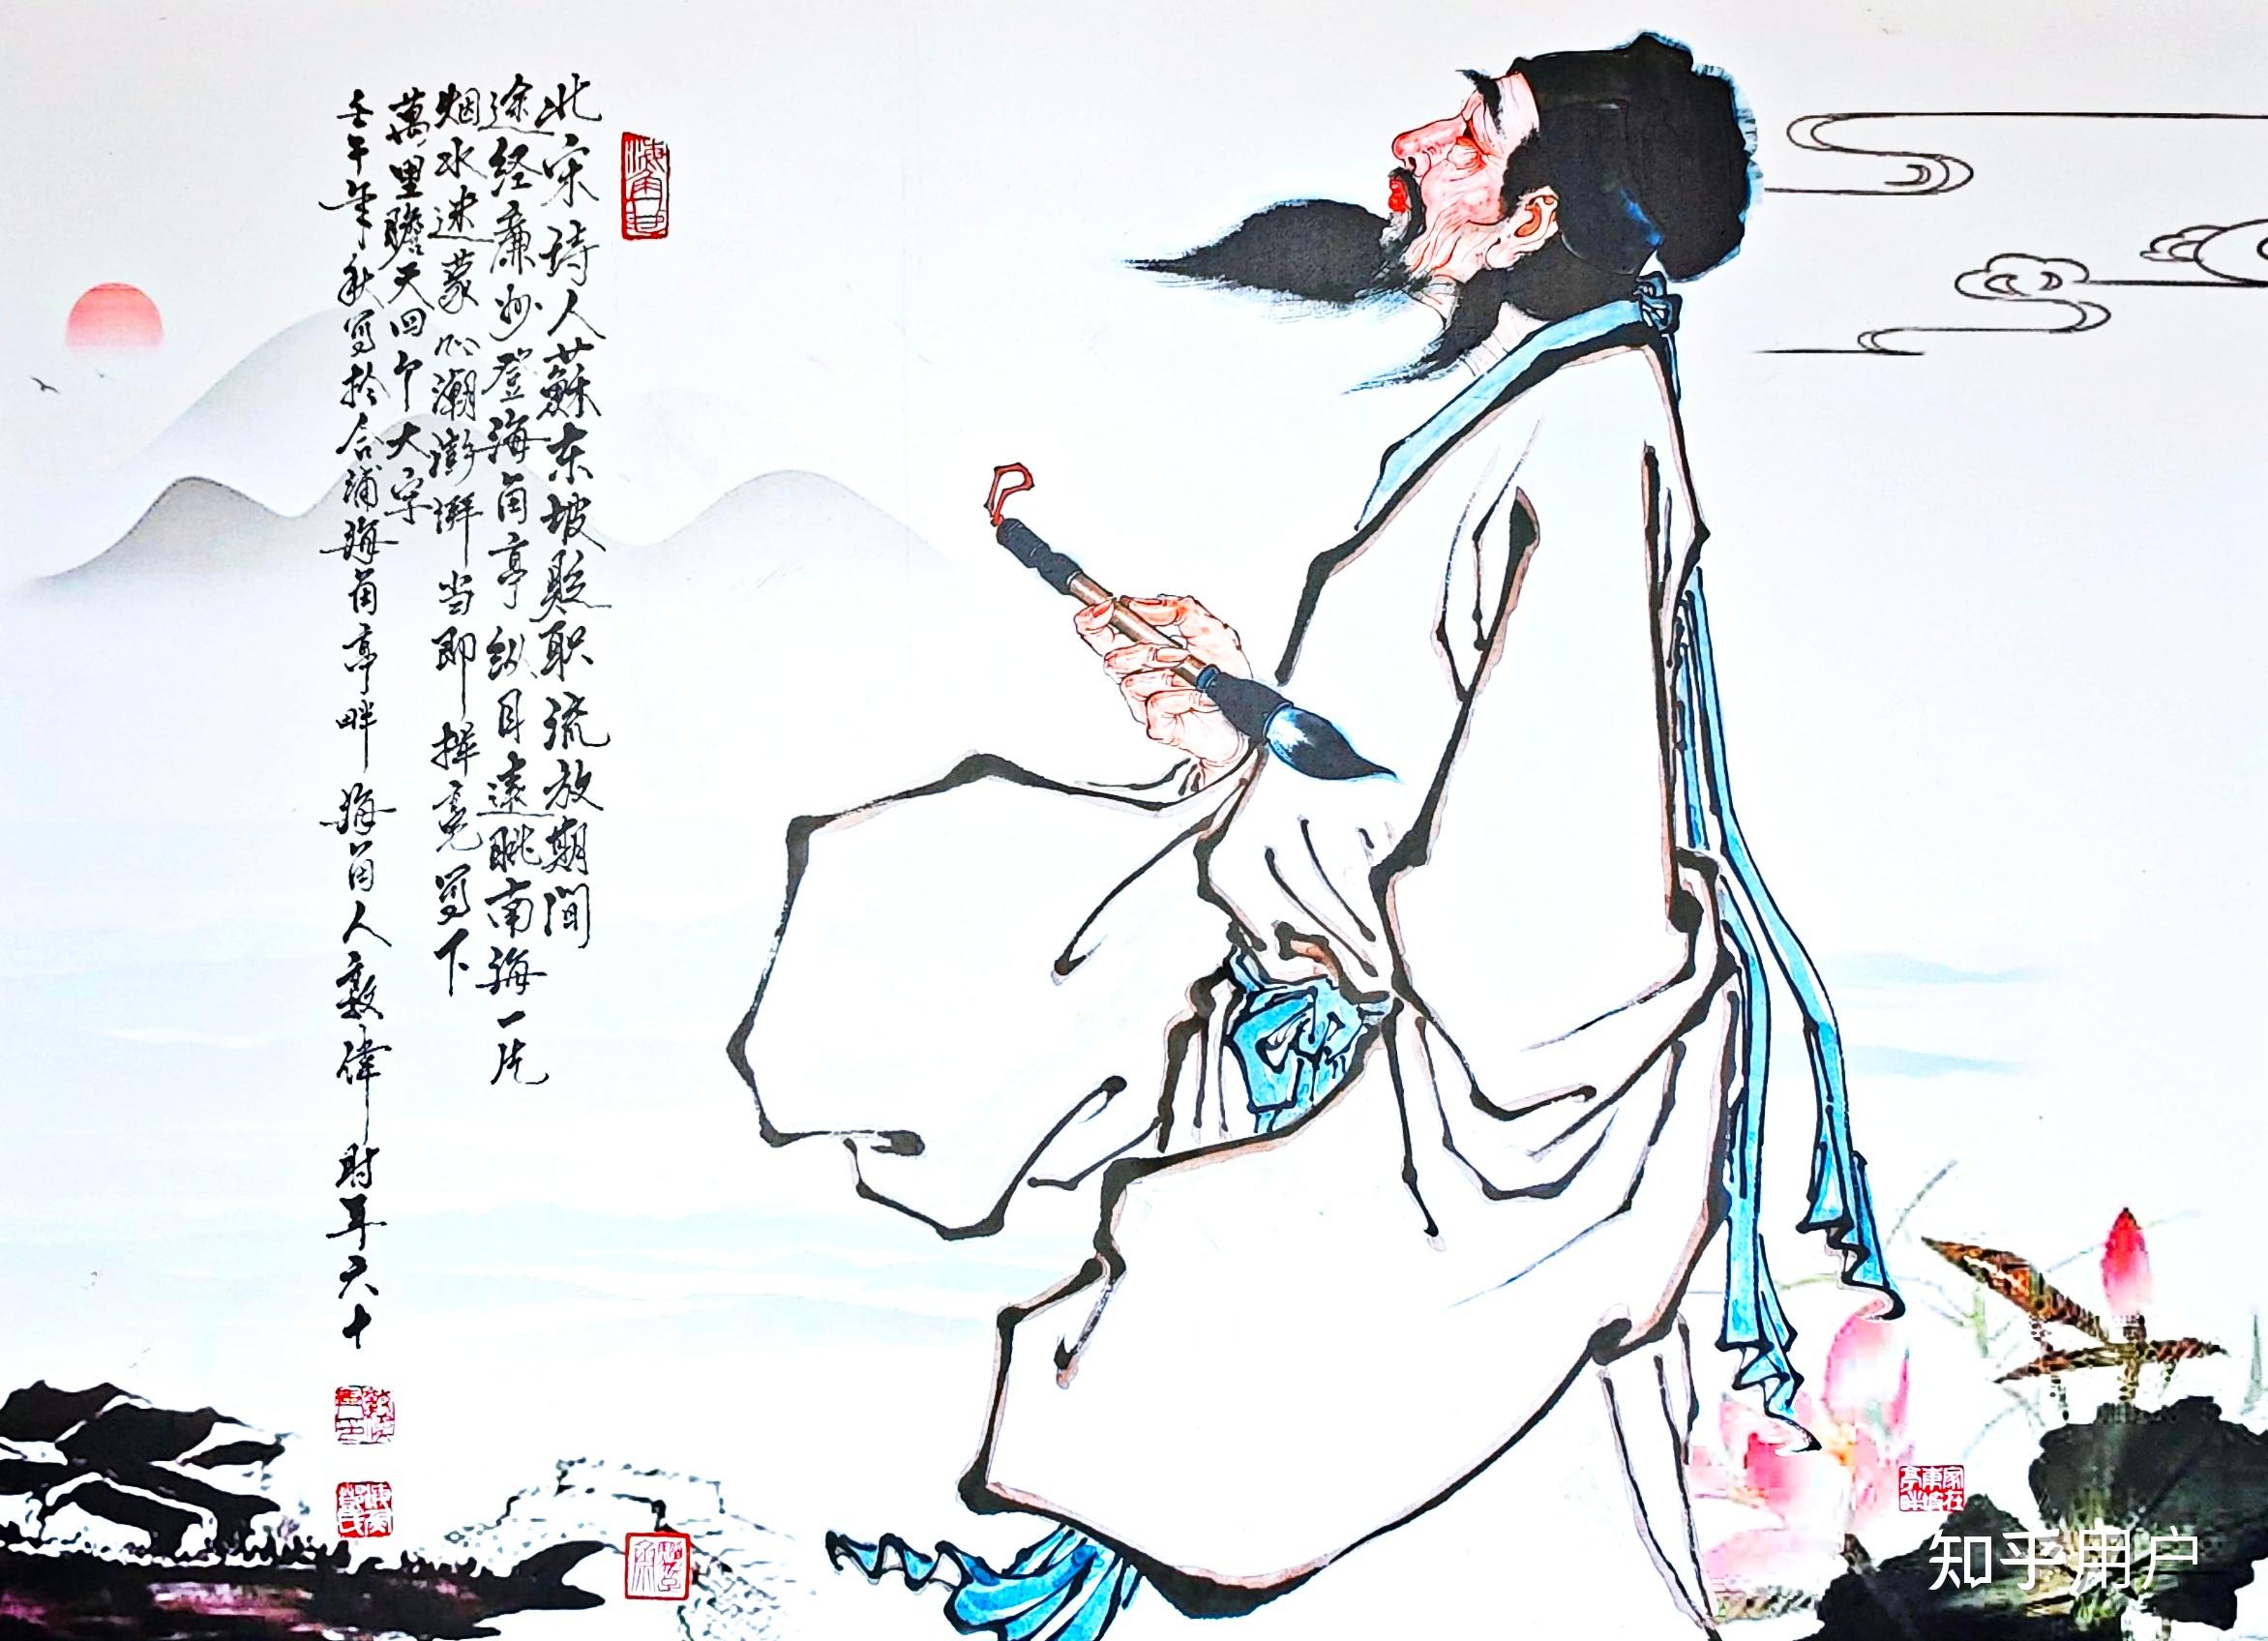 北宋诗人蘇东坡贬职流放期间
途经廉州登海角亭纵目远眺南海一片
烟水迷蒙心潮澎湃当即挥亳写下
萬里瞻天四个大字
壬午年秋写於合浦海角亭畔 海角人敦偉时年六十
知乎用户